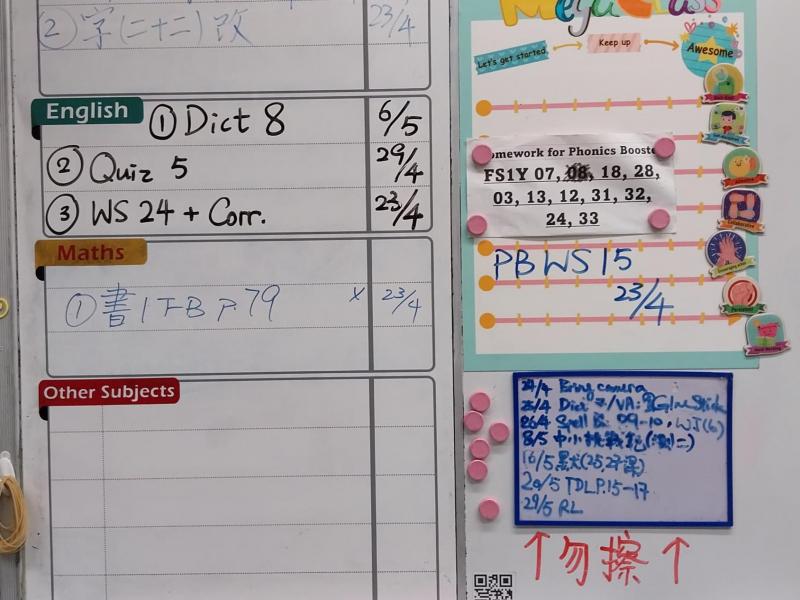 ② 字(二十二)改 23/4
English
① Dict 8 6/5
② Quiz 5 29/4
③ WS 24 + Corr. 23/4
Maths
① 書1TB P.79 x 23/4
Other Subjects
Mega Class
Let's get started Keep up Awesome
Homework for Phonics Booster
FS1Y 07, 08, 18, 28,
03, 13, 12, 31, 32,
24, 33
PB WS 15
23/4
24/4 Bring camera
25/4 Dict 7/VA: Glue Stick
26/4 Spell B. 09-10, WJ(6)
8/5 中小
16/5 默(25,27課)
20/5 TDL P.15-17
29/5 RL
↑勿擦↑